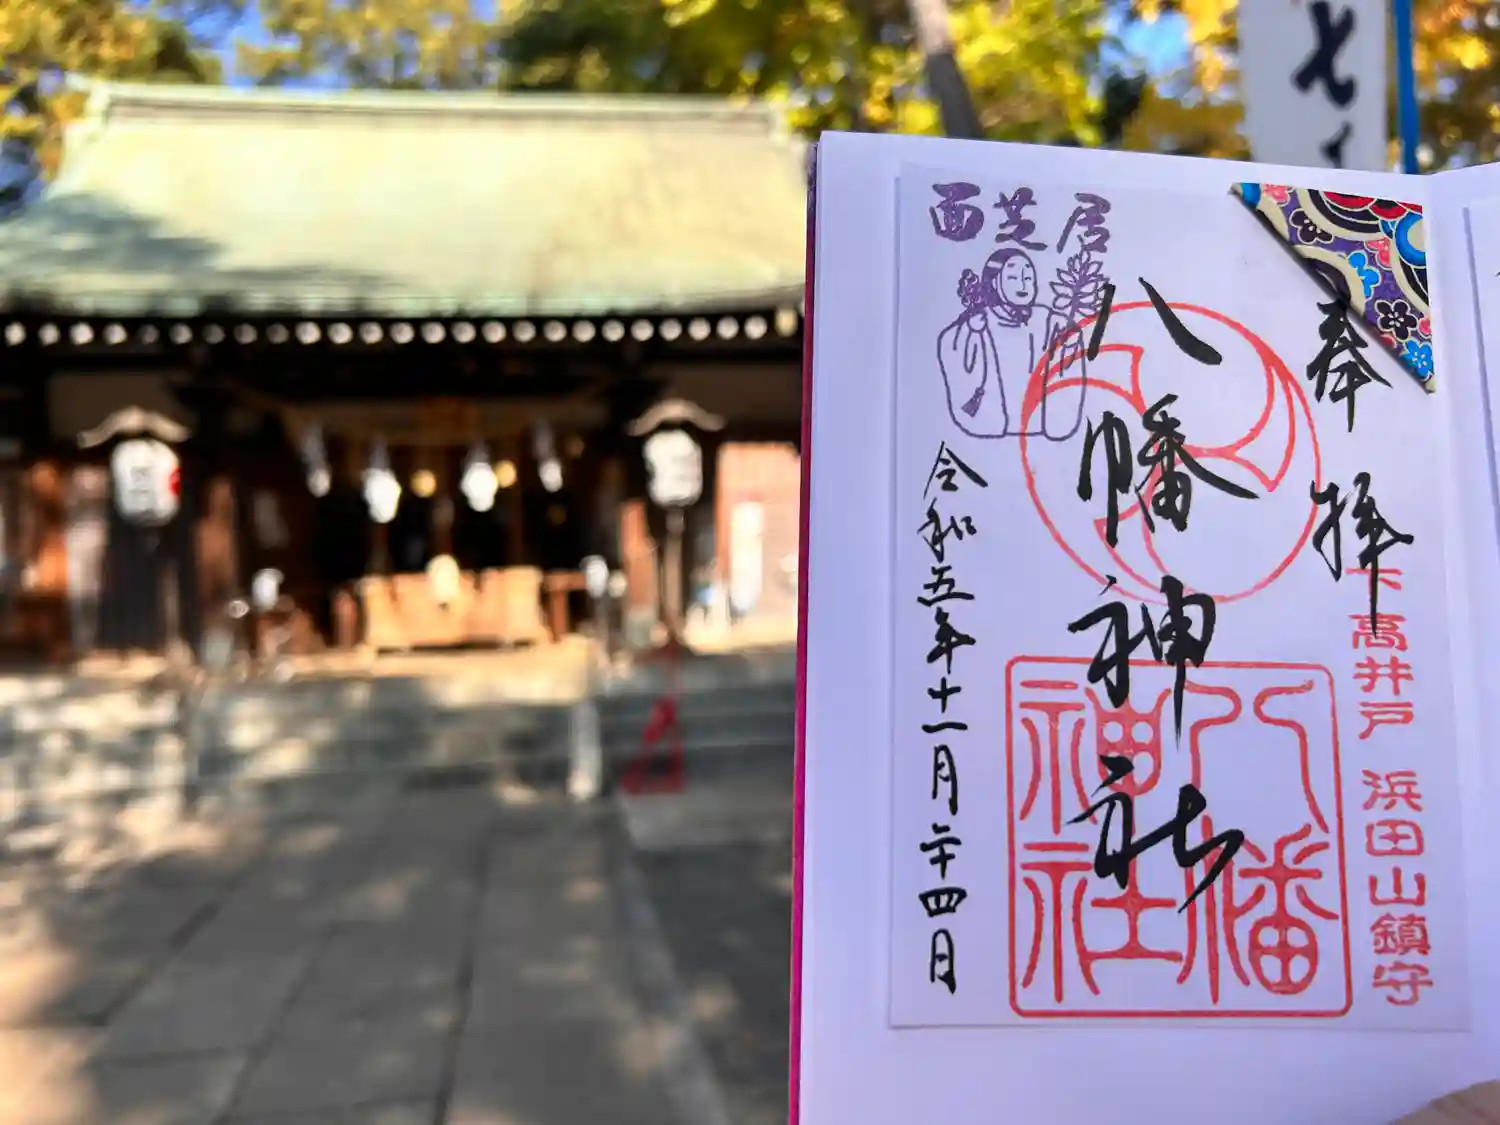 奉拝
下高井戸 浜田山鎮守
八幡神社
八幡
神社
面芝居
令和五年十一月二十四日